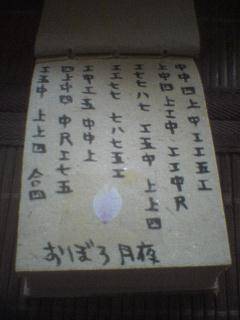 中中四上中工工五工
上中四上工中工工中尺
工七七ハ七工五中上上四
工工七七七ハ七五工
工中工五中中上
四上中四中尺工七五
工五中上上四合四
おりぼろ月夜